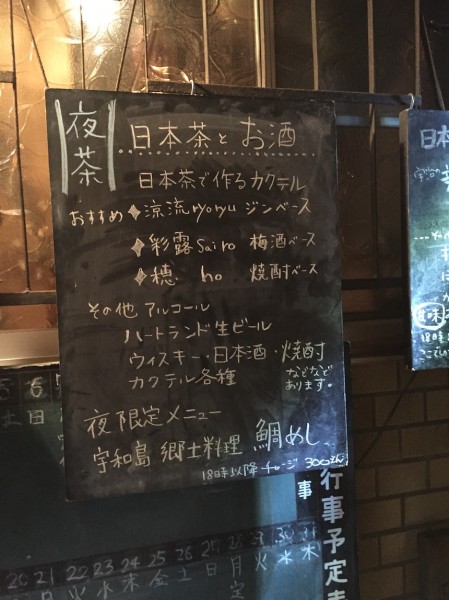 夜茶
日本茶とお酒
日本茶で作るカクテル
おすすめ ◆涼流 ryoryu ジンベース
◆彩露 Sairo 梅酒ベース
◆穂 ho 焼酎ベース
その他 アルコール
ハートランド生ビール
ウィスキー・日本酒・焼酎
カクテル各種 などなどあります。
夜限定メニュー
宇和島 郷土料理 鯛めし
18時以降 チャージ 300えん
行事予定表
事
土 日
20 21 22 23 24 25 26 27 28 29 30 31
日 火 水 木 金 土 日 月 火 水 木
日本
18時